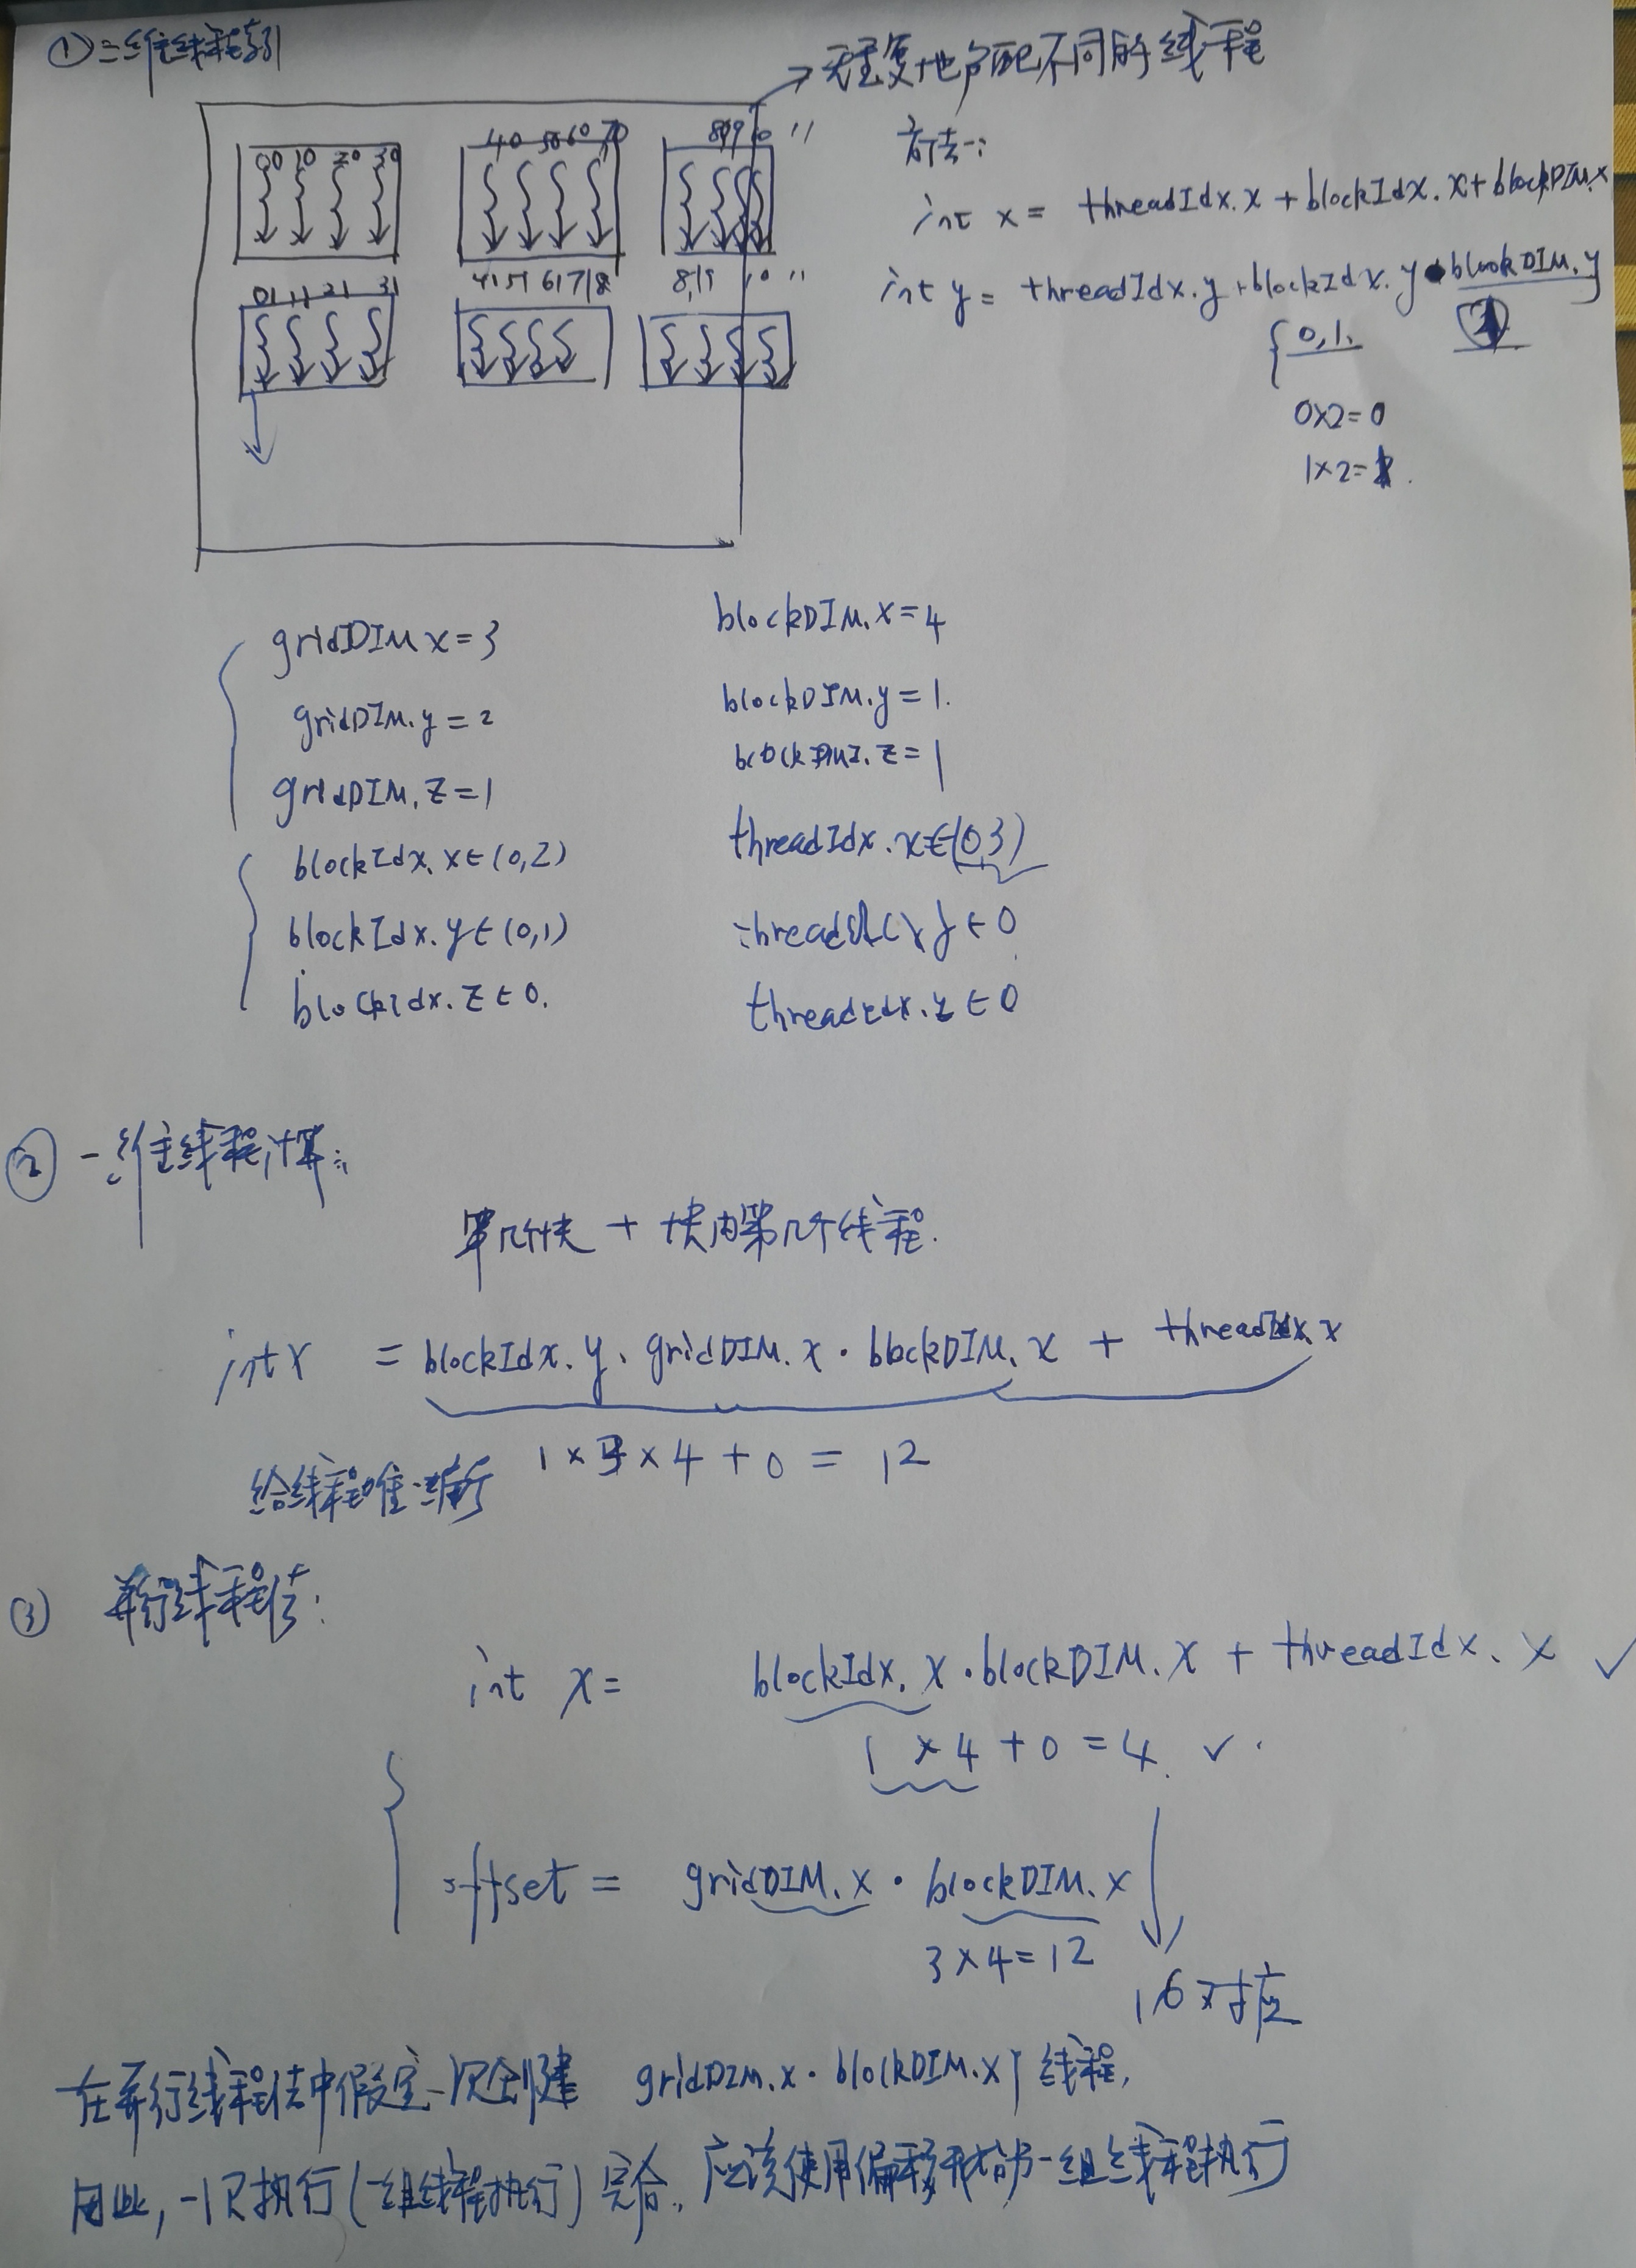 ① 二维线程索引
→ 无重复地匹配不同的线程
00 10 20 30
40 50 60 70
8 9 10 11
方法一:
int x = threadIdx.x + blockIdx.x + blockDIM.x
01 11 21 31
41 51 61 71 8
8,1 9 10 11
int y = threadIdx.y + blockIdx.y • blockDIM.y
{ 0,1.
0×2=0
1×2=
gridDIM x=3
gridDIM.y = 2
gridDIM.z=1
blockIdx.x∈(0,2)
blockIdx.y∈(0,1)
blockIdx.z∈0.
blockDIM.x=4
blockDIM.y=1.
blockDIM.z=1
threadIdx.x∈(0 3)
y∈0
threadIdx.z∈0
② 一维线程计算:
第几个块 + 块内第几个线程.
int x = blockIdx.y · gridDIM.x · blockDIM.x + threadIdx.x
1×3×4+0=12
给线程唯一编号
③ 并行线程法:
int x = blockIdx.x · blockDIM.x + threadIdx.x ✓
1×4+0=4. ✓.
offset = gridDIM.x · blockDIM.x
3×4=12
16对应
在并行线程法中假定一次创建 gridDIM.x · blockDIM.x个线程,
因此,一次执行(一组线程执行)完合,应该使用偏移开始另一组线程执行